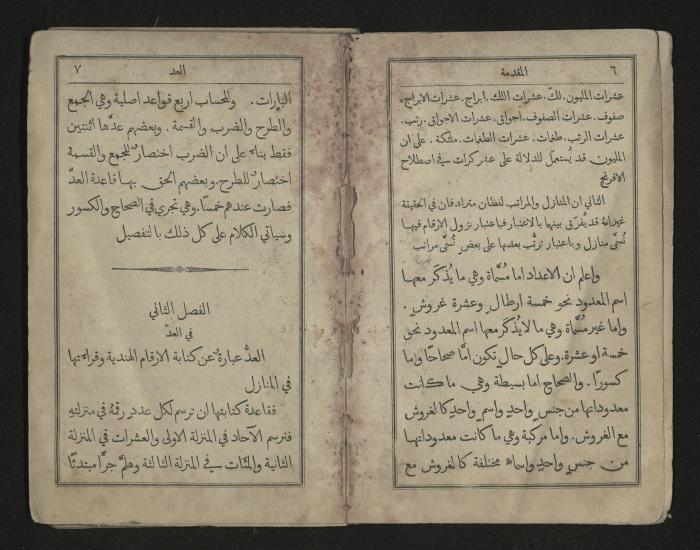 ٦
المقدمة
عشرات المليون. لك. عشرات اللك. ابراج. عشرات الابراج.
صفوف. عشرات الصفوف. اجواق. عشرات الاجواق. رتب.
عشرات الرتب. طغات. عشرات الطغات. ملتكة. على ان
المليون قد يُستعمل للدلالة على عشر كرات في اصطلاح
الافرنج
الثاني ان المنازل والمراتب لفظتان مترادفان في الحقيقة
غير انه قد يُفرَق بينها بالاعتبار فباعتبار نزول الارقام فيها
تُسمَّى منازل وباعتبار ترتُّب بعضها على بعضٍ تُسمَّى مراتب
واعلم ان الاعداد اما مُسمَّاة وهي ما يُذكَر معها
اسم المعدود نحو خمسة ارطالٍ وعشرة غروشٍ.
واما غير مسمَّاة وهي ما لا يُذكَر معها اسم المعدود نحو
خمسة او عشرة. وعلى كل حالٍ تكون امَّا صحاحًا واما
كسورًا. والصحاح اما بسيطة وهي ما كانت
معدوداتها من جنسٍ واحدٍ واسمٍ واحدٍ كالغروش
مع الغروش. واما مركبة وهي ما كانت معدوداتها
من جنسٍ واحدٍ واسماءٍ مختلفة كالغروش مع
العد
٧
البارات. وللحساب اربع قواعد اصلية وهي الجمع
والطرح والضرب والقسمة. وبعضهم عدَّها اثنتين
فقط بناءً على ان الضرب اختصارٌ للجمع والقسمة
اختصارٌ للطرح. وبعضهم الحق بها قاعدة العدّ
فصارت عندهم خمسًا. وهي تجري في الصحاح والكسور
وسياتي الكلام على كل ذلك بالتفصيل
الفصل الثاني
في العدّ
العدُّ عبارةٌ عن كتابة الارقام الهندية وقراءتها
في المنازل
فقاعدة كتابتها ان ترسم لكل عددٍ رقمهُ في منزلتهِ
فترسم الآحاد في المنزلة الاولى والعشرات في المنزلة
الثانية والمئات في المنزلة الثالثة وهلمَّ جرًّا مبتدئًا